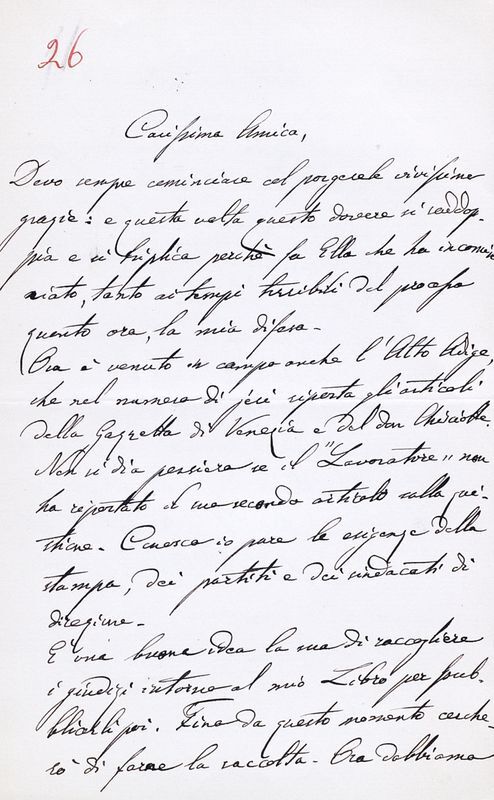 26
Carissima Amica,
Devo sempre cominciare col porgerele vivissime
grazie: e questa volta questo dovere si raddop-
pia e si triplica perchè fu Ella che ha incomin
ciato, tanto ai tempi terribili del processo
quanto ora, la mia difesa.
Ora è venuto in campo anche l'Alto Adige,
che nel numero di jeri riporta gli articoli
della Gazzetta di Venezia e del don Chisciotte.
Non si dia pensiero se il "Lavoratore" non
ha riportato il suo secondo articolo sulla que-
stione. Conosco io pure le esigenze della
stampa, dei partiti e dei sindacati di
direzione.
È una buona idea la sua di raccogliere
i giudizi intorno al mio Libro per pub-
blicarli poi. Fino da questo momento cerche-
rò di farne la raccolta. Ora dobbiamo